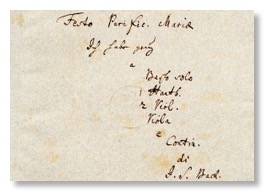 Festo Purific. Mariæ
Ich habe genug
a
Basso solo
1 Hautb.
2 Viol.
Viola
e
Contin.
di
J. S. Bach.